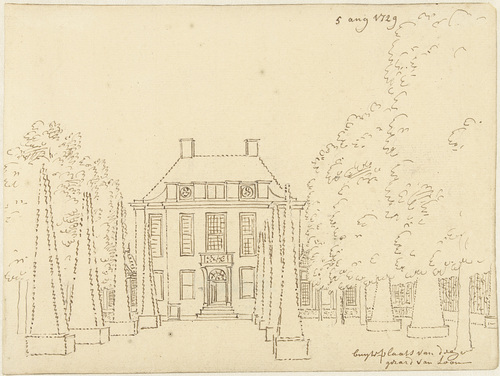 5 aug 1729
buytplaats van de
gerard van Loon